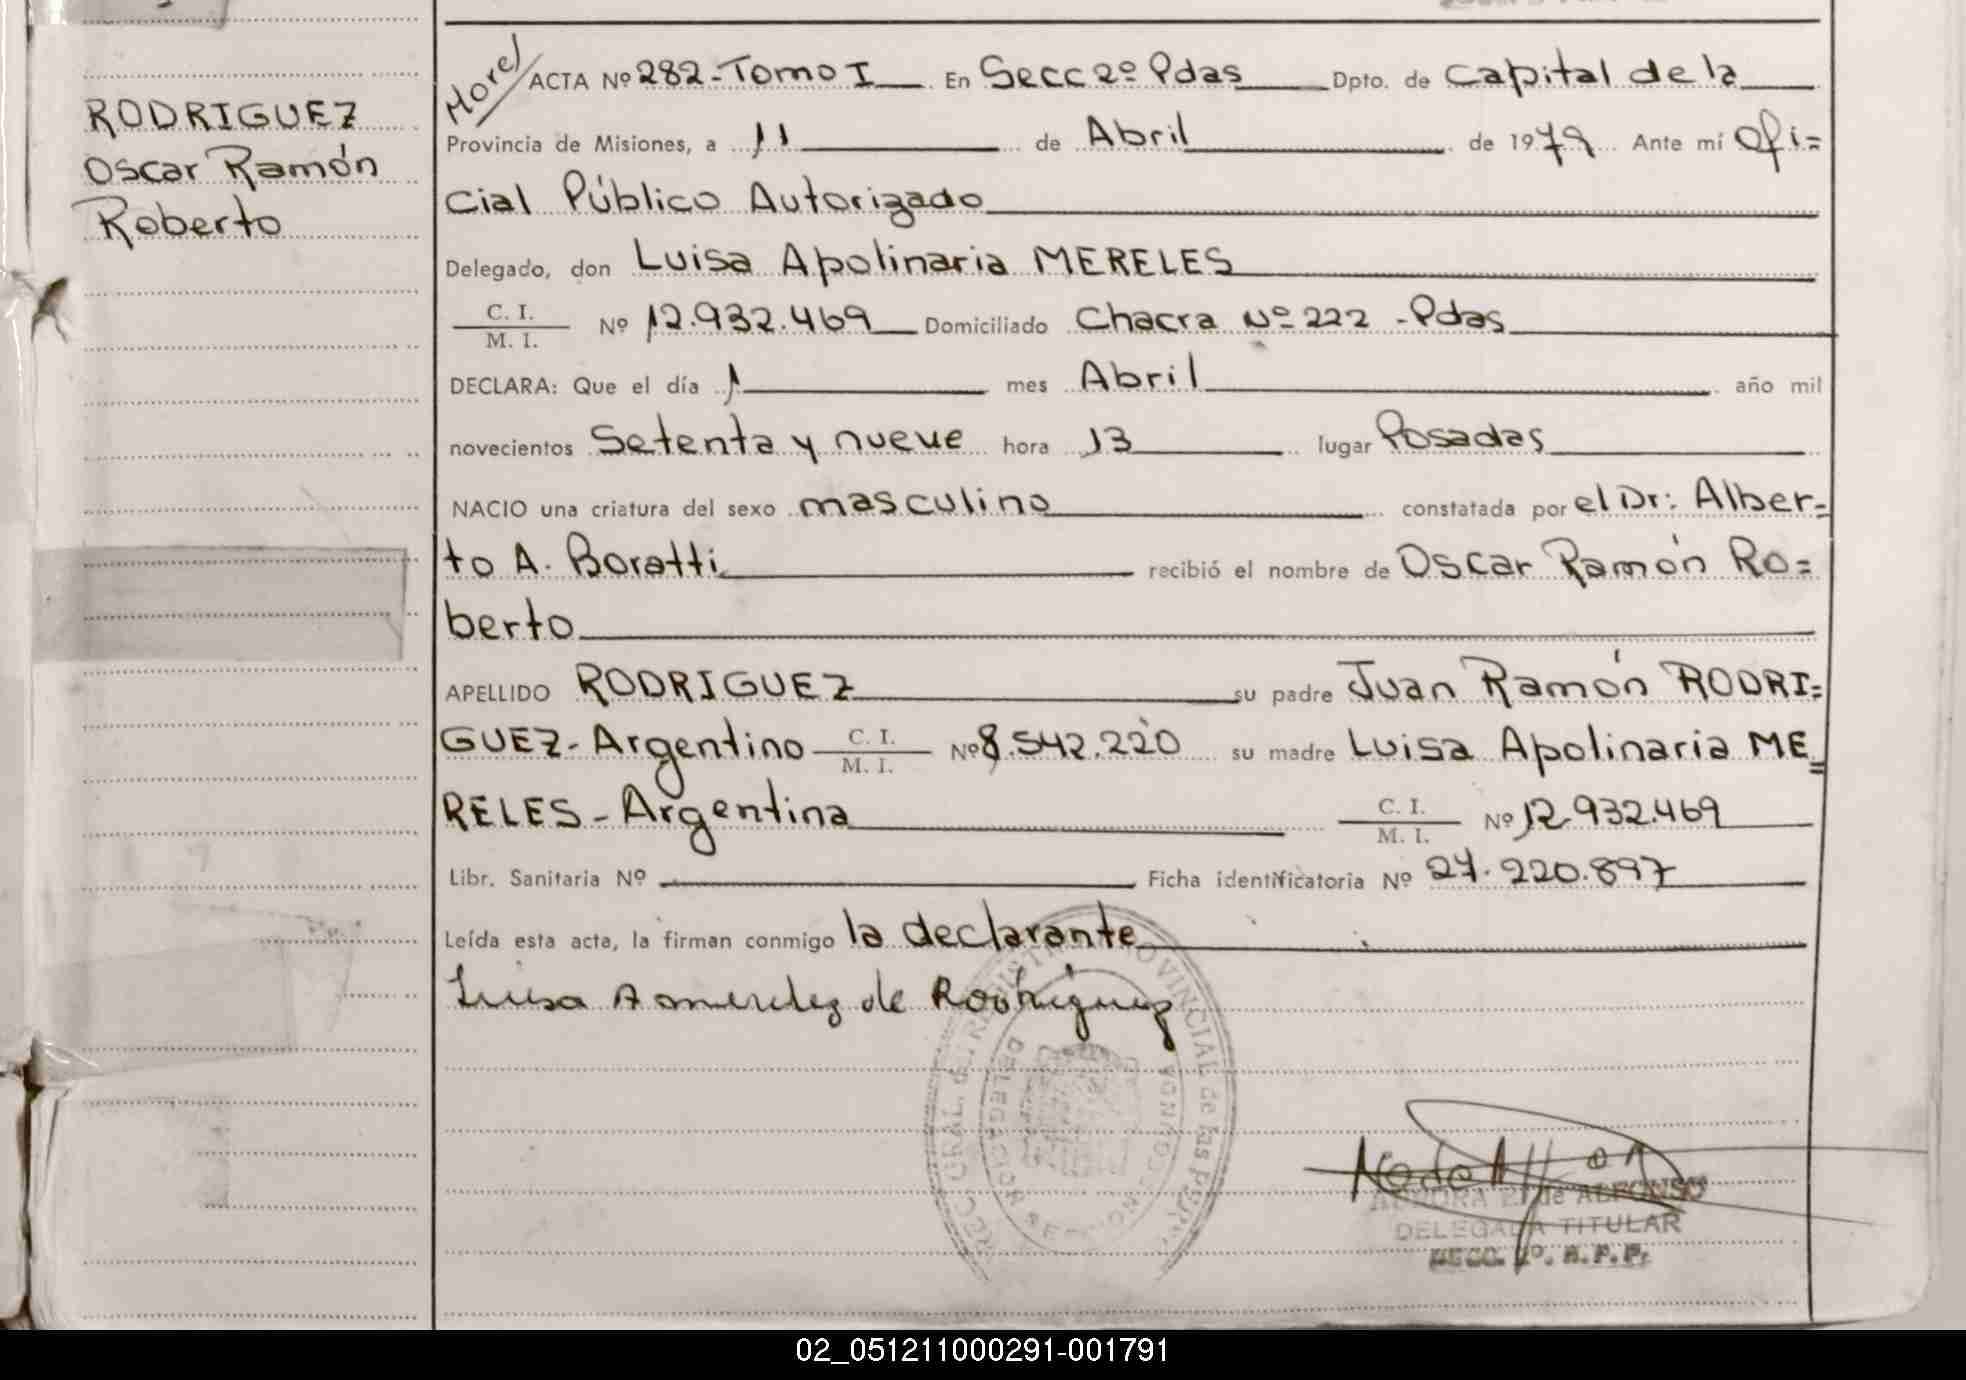 RODRIGUEZ
Oscar Ramón
Roberto
Morel
ACTA Nº 282-Tomo I En Secc 2º Pdas Dpto. de Capital de la
Provincia de Misiones, a 11 de Abril de 1979 Ante mí Ofi=
cial Público Autorizado
Delegado, don Luisa Apolinaria MERELES
C. I.
M. I.
Nº 12.932.469 Domiciliado Chacra Nº 222 - Pdas
DECLARA: Que el día 1 mes Abril año mil
novecientos Setenta y nueve hora 13 lugar Posadas
NACIO una criatura del sexo masculino constatada por el Dr: Alber=
to A. Boratti recibió el nombre de Oscar Ramón Ro=
berto
APELLIDO RODRIGUEZ su padre Juan Ramón RODRI=
GUEZ - Argentino C. I. M. I. Nº 8.542.220 su madre Luisa Apolinaria ME=
RELES - Argentina C. I. M. I. Nº 12.932.469
Libr. Sanitaria Nº Ficha identificatoria Nº 27.220.897
Leída esta acta, la firman conmigo la declarante
Luisa A mereles de Rodriguez
PROVINCIAL de las
DELEGACION
de ALFONSO
DELEGADA TITULAR
SECC. 2º.
02_051211000291-001791